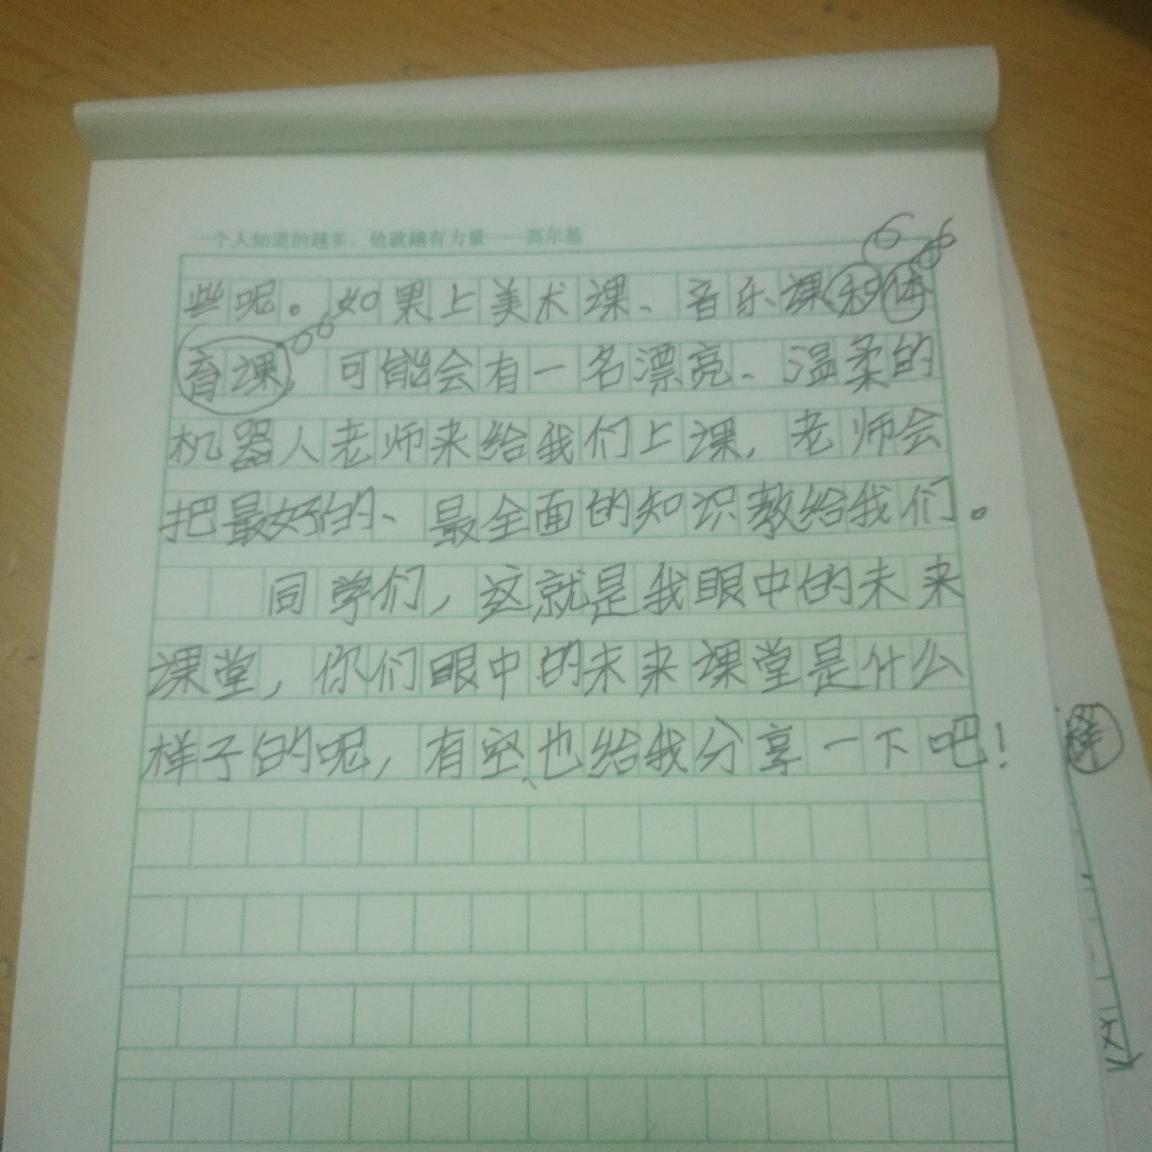 一个人知道的越多，他就越有力量——高尔基
些呢。如果上美术课、音乐课和体
育课，可能会有一名漂亮、温柔的
机器人老师来给我们上课，老师会
把最好的、最全面的知识教给我们。
同学们，这就是我眼中的未来
课堂，你们眼中的未来课堂是什么
样子的呢，有空也给我分享一下吧！